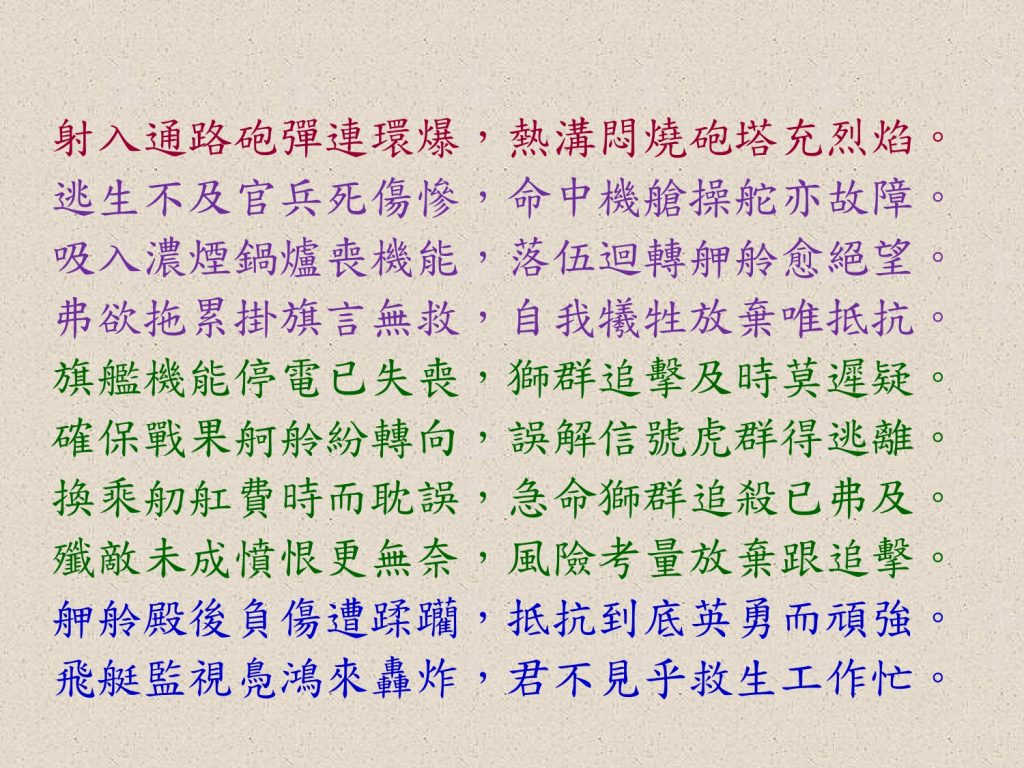 射入通路砲彈連環爆，熱溝悶燒砲塔充烈焰。
逃生不及官兵死傷慘，命中機艙操舵亦故障。
吸入濃煙鍋爐喪機能，落伍迴轉舺舲愈絕望。
弗欲拖累掛旗言無救，自我犧牲放棄唯抵抗。
旗艦機能停電已失喪，獅群追擊及時莫遲疑。
確保戰果舸舲紛轉向，誤解信號虎群得逃離。
換乘舠舡費時而耽誤，急命獅群追殺已弗及。
殲敵未成憤恨更無奈，風險考量放棄跟追擊。
舺舲殿後負傷遭蹂躪，抵抗到底英勇而頑強。
飛艇監視鳧鴻來轟炸，君不見乎救生工作忙。